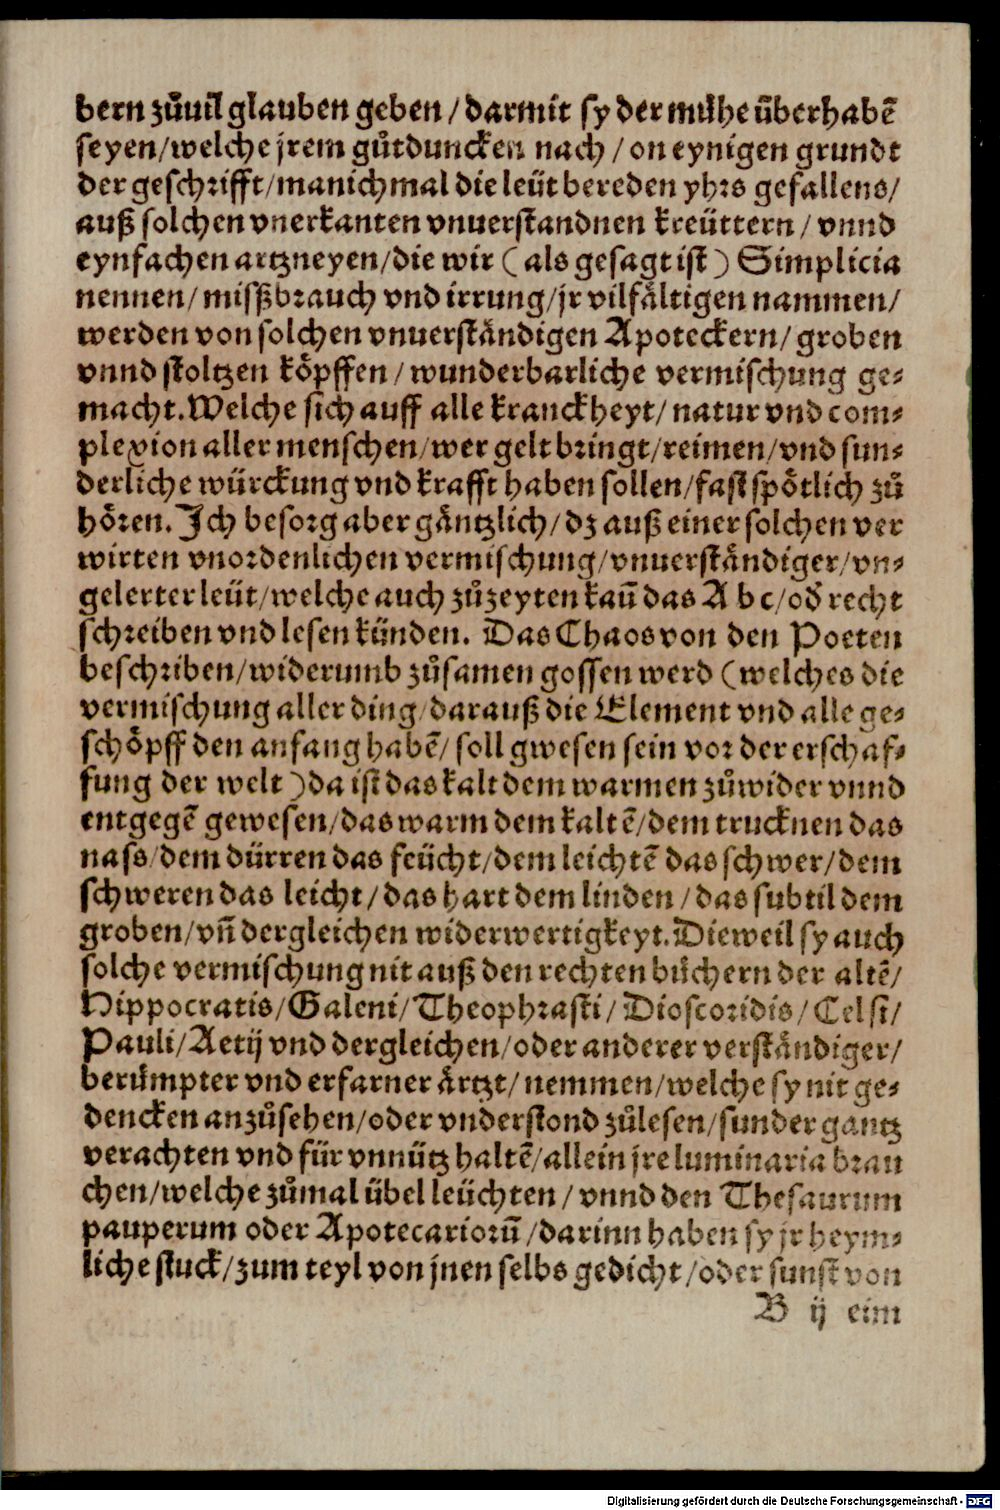 bern zůuil glauben geben / darmit sy der mühe überhabē
seyen/welche jrem gůtduncken nach / on eynigen grundt
der geschrifft/manichmal die leüt bereden yhrs gefallens/
auß solchen vnerkanten vnuerstandnen kreüttern / vnnd
eynfachen artzneyen/die wir ( als gesagt ist ) Simplicia
nennen/ mißbrauch vnd irrung/jr vilfåltigen nammen/
werden von solchen vnuerståndigen Apoteckern/ groben
vnnd stoltzen köpffen / wunderbarliche vermischung ge⸗
macht.Welche sich auff alle kranckheyt/ natur vnd com⸗
plexion aller menschen/wer gelt bringt/reimen/vnd sun⸗
derliche würckung vnd krafft haben sollen/fast spötlich zů
hören. Ich besorg aber gåntzlich/dz auß einer solchen ver
wirten vnordenlichen vermischung/vnuerståndiger/vn⸗
gelerter leüt/welche auch zůzeyten kaū das A b c/od̕ recht
schreiben vnd lesen künden. Das Chaos von den Poeten
beschriben/widerumb zůsamen gossen werd (welches die
vermischung aller ding/darauß die Element vnd alle ge⸗
schöpff den anfang habē/ soll gwesen sein vor der erschaf⸗
fung der welt ) da ist das kalt dem warmen zůwider vnnd
entgegē gewesen/das warm dem kaltē/dem trucknen das
nass/dem dürren das feücht/dem leichtē das schwer/dem
schweren das leicht/das hart dem linden/das subtil dem
groben/vn̄ dergleichen widerwertigkeyt.Dieweil sy auch
solche vermischung nit auß den rechten büchern der altē/
Hippocratis/Galeni/Theophrasti/ Dioscoridis/ Celsi/
Pauli/Aetij vnd dergleichen/oder anderer verståndiger/
berümpter vnd erfarner årtzt/ nemmen/welche sy nit ge⸗
dencken anzůsehen/oder vnderstond zůlesen/sunder gantz
verachten vnd für vnnütz haltē/allein jre luminaria brau
chen/welche zůmal übel leüchten / vnnd den Thesaurum
pauperum oder Apotecariorū/darinn haben sy jr heym⸗
liche stuck/zum teyl von jnen selbs gedicht/oder sunst von
B ij eim
Digitalisierung gefördert durch die Deutsche Forschungsgemeinschaft - DFG